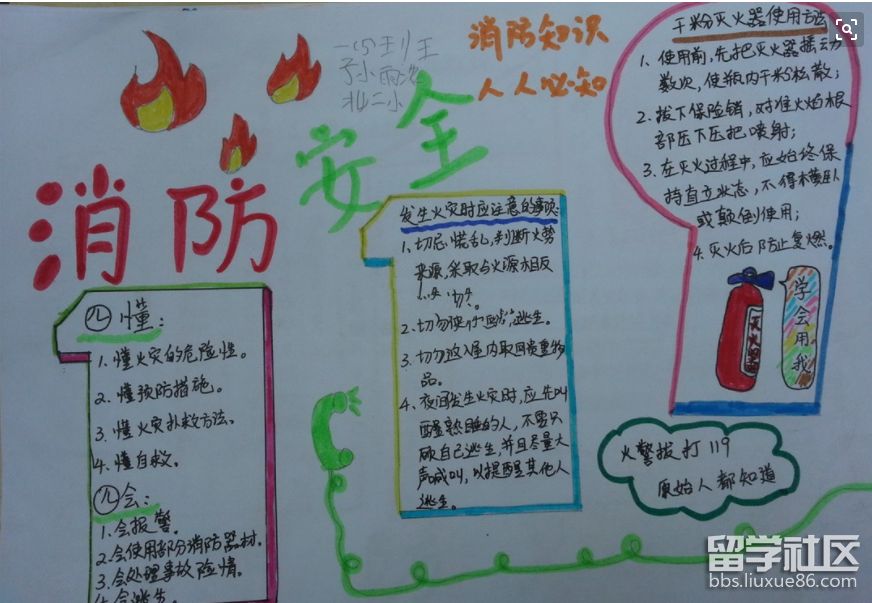 消防安全
消防知识
人人必知
四懂：
1. 懂火灾的危险性。
2. 懂预防措施。
3. 懂火灾扑救方法。
4. 懂自救。
四会：
1. 会报警。
2. 会使用部分消防器材.
3. 会处理事故险情。
4. 会逃生。
发生火灾时应注意的事项:
1. 切忌慌乱,判断火势
来源,采取与火源相反
2. 切勿使 逃生。
3. 切勿返入屋内取回贵重物
品。
4. 夜间发生火灾时,应先叫
醒熟睡的人,不要只
顾自己逃生,并且尽量大
声喊叫,以提醒其他人
逃生。
干粉灭火器使用方法
1. 使用前,先把灭火器摇动
数次,使瓶内干粉松散;
2. 拔下保险销,对准火焰根
部压下压把喷射;
3. 在灭火过程中,应始终保
持直立状态,不得横卧
或颠倒使用;
4. 灭火后防止复燃。
灭火器
学会用我
火警拔打119
原始人都知道
留学社区
bbs.liuxue86.com